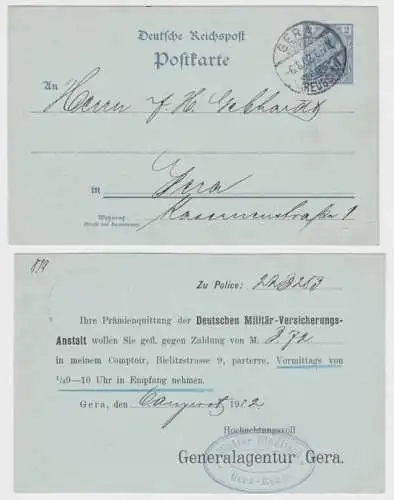 Deutsche Reichspost
Postkarte
GERA
REUSS
2
An
Herrn F. H. Gebhardt
in Gera
Wohnung
Kasernenstraße 1
819
Zu Police:
Ihre Prämienquittung der Deutschen Militär-Versicherungs-
Anstalt wollen Sie gefl. gegen Zahlung von M. 3.72
in meinem Comptoir, Bielitzstrasse 9, parterre, Vormittags von
½9—10 Uhr in Empfang nehmen.
Gera, den 1902
Hochachtungsvoll
Generalagentur Gera.